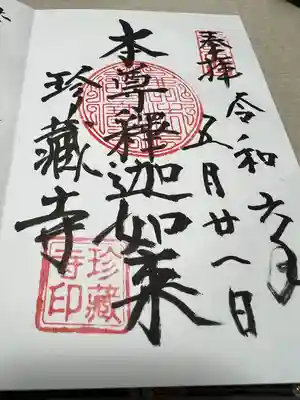 奉拝
令和六年
五月廿八日
本尊釋迦如来
珍藏寺
珍藏
寺印